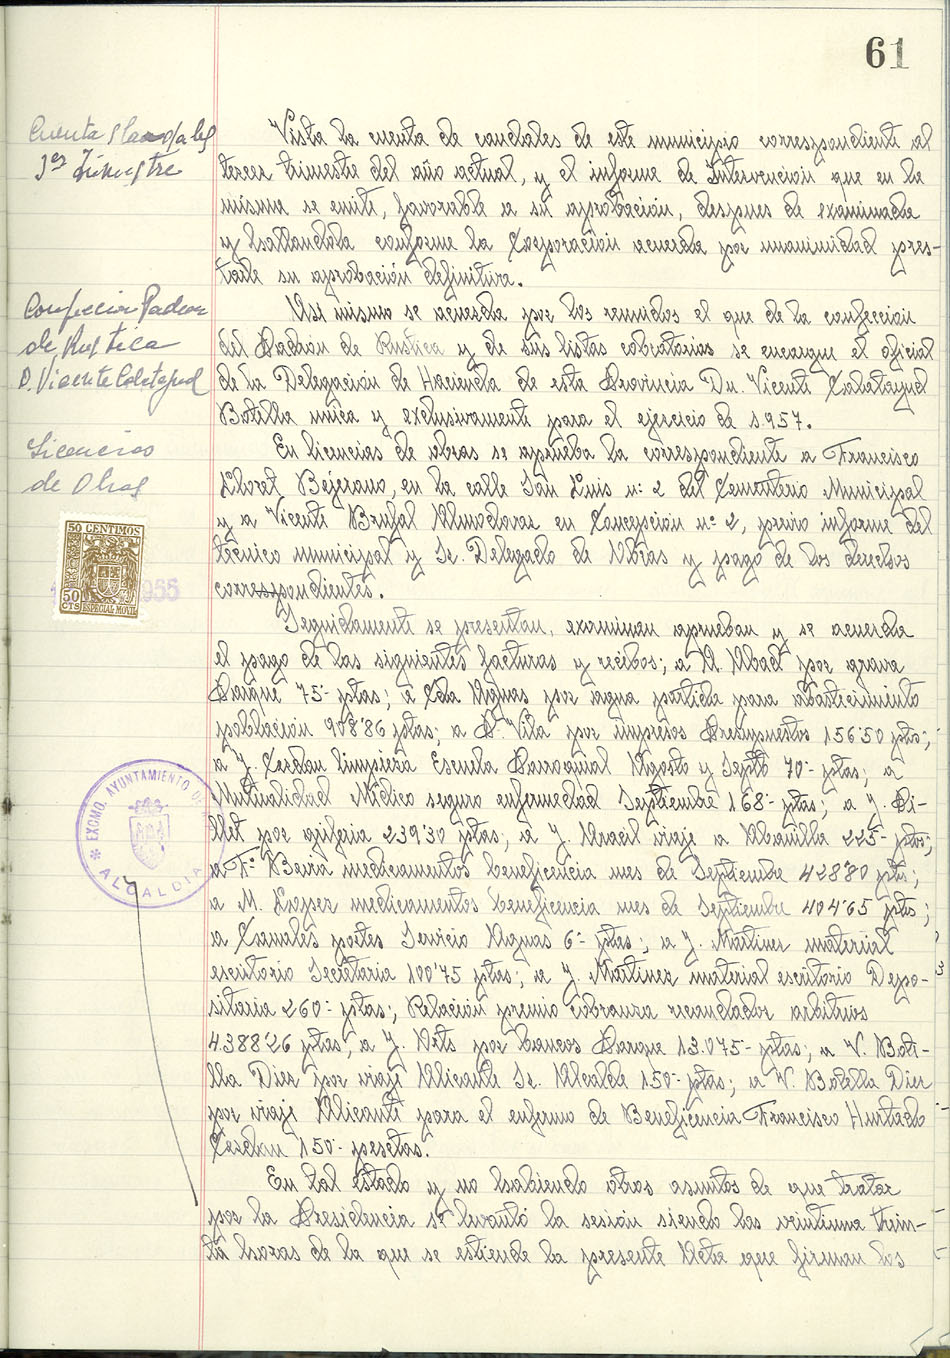 61
Cuenta Caudales
3er Trimestre
Vista la cuenta de caudales de este municipio correspondiente al
tercer trimestre del año actual, y el informe de Intervención que en la
misma se emite, favorable a su aprobación, despues de examinada
y hallandola conforme la Corporación acuerda por unanimidad pres-
tarle su aprobación definitiva.
Confección Padrón
de Rustica
D. Vicente Calatayud
Asi mismo se acuerda por los reunidos el que de la confección
del Padrón de Rustica y de sus listas cobratorias se encargue el oficial
de la Delegación de Hacienda de esta Provincia Dn. Vicente Calatayud
Botella unica y exclusivamente para el ejercicio de 1.957.
Licencias
de Obras
En licencias de obras se aprueba la correspondiente a Francisco
Lloret Bejerano, en la calle San Luis nº 2 del Cementerio Municipal
y a Vicente Brufal Almodovar en Concepción nº 2, previo informe del
técnico municipal y Sr. Delegado de Obras y pago de los derechos
correspondientes.
50 CENTIMOS
50 CTS ESPECIAL MOVIL
1955
Seguidamente se presentan, examinan aprueban y se acuerda
el pago de las siguientes facturas y recibos; a A. Abad por grava
Parque 75- ptas; a Cia Aguas por agua partida para abastecimiento
población 908'86 ptas; a P. Vila por impresos Presupuestos 156'50 ptas;
a J. Cerdan limpieza Escuela Parroquial Agosto y Septb 70- ptas; a
Mutualidad Médico seguro enfermedad Septiembre 168- ptas; a J. Bi-
llet por 239'30 ptas; a J. Aracil viaje a 225- ptas;
a Fº Beviá medicamentos beneficencia mes de Septiembre 428'80 ptas;
a M. Lopez medicamentos beneficencia mes de Septiembre 404'65 ptas;
a Canales portes Servicio Aguas 6- ptas; a J. Martinez material
escritorio Secretaria 100'75 ptas; a J. Martinez material escritorio Depo-
sitaria 260- ptas; Relación premio cobranza recaudador arbitrios
4.388'26 ptas; a J. Arts por bancos Parque 13.075- ptas; a V. Bote-
lla Diez por viaje Alicante Sr. Alcalde 150- ptas; a V. Botella Diez
por viaje Alicante para el enfermo de Beneficencia Francisco Hurtado
Cerdan 150- pesetas.
EXCMO. AYUNTAMIENTO DE
* ALCALDIA
En tal estado y no habiendo otros asuntos de que tratar
por la Presidencia se levantó la sesión siendo las veintiuna trein-
ta horas de la que se estiende la presente Acta que firman los